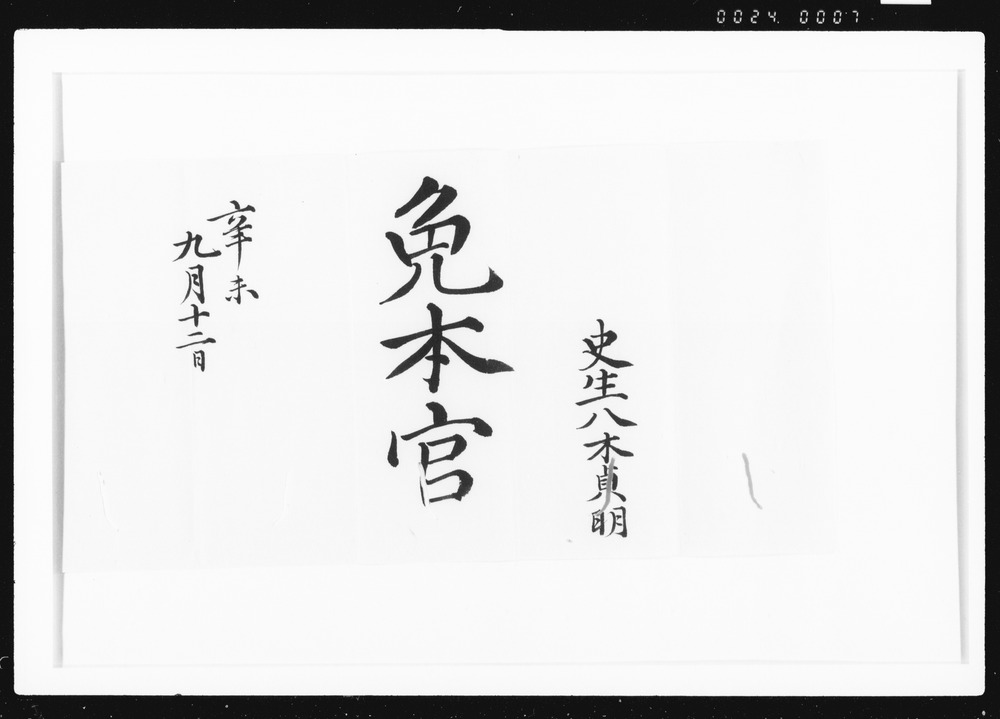 0024 0007
史生八木貞明
免本官
辛未
九月十二日